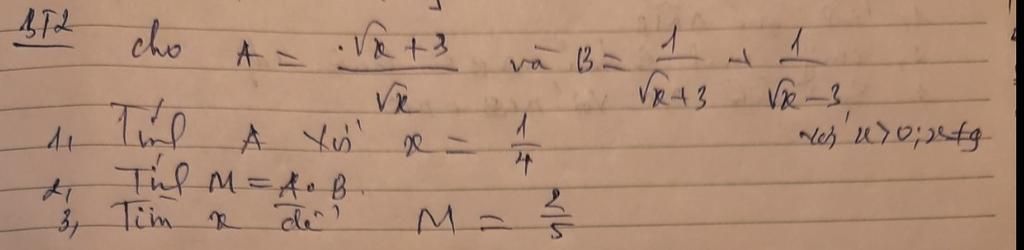 BT2 cho A = (√x + 3)/√x và B = 1/(√x + 3) + 1/(√x - 3)
với x > 0; x ≠ 9
1, Tính A với x = 1/4
2, Tính M = A . B.
3, Tìm x để M = 2/5